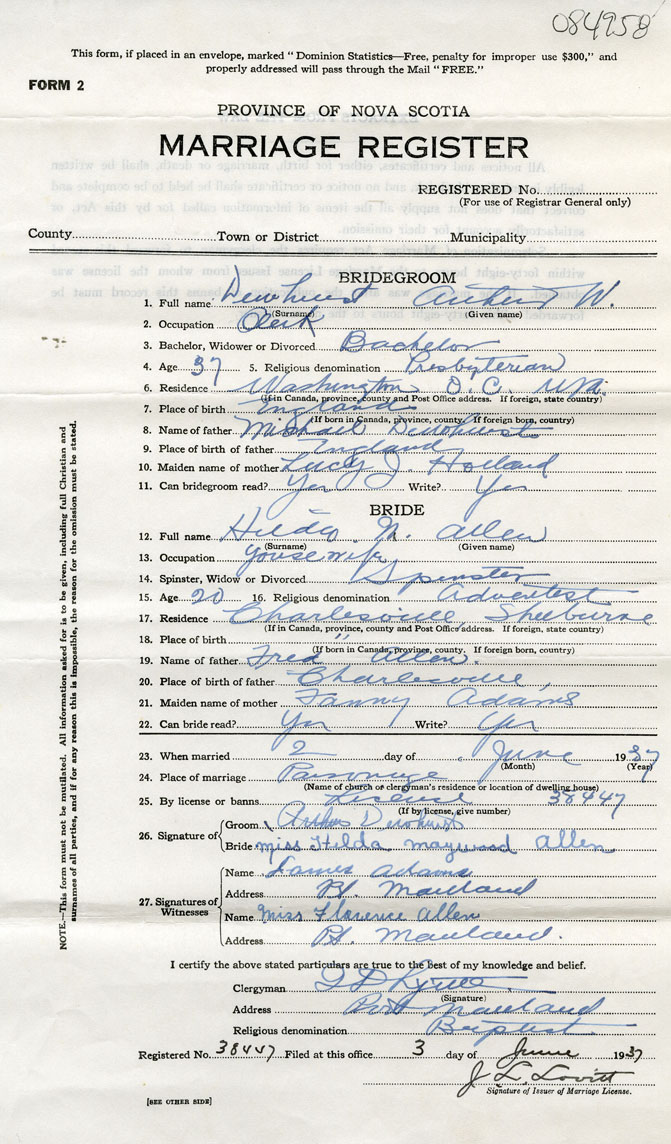 084958
This form, if placed in an envelope, marked "Dominion Statistics—Free, penalty for improper use $300," and
properly addressed will pass through the Mail "FREE."
FORM 2
PROVINCE OF NOVA SCOTIA
MARRIAGE REGISTER
REGISTERED No.
(For use of Registrar General only)
County Town or District Municipality
BRIDEGROOM
1. Full name Dewhurst Arthur W.
(Surname) (Given name)
2. Occupation Clerk
3. Bachelor, Widower or Divorced Bachelor
4. Age 37 5. Religious denomination Presbyterian
6. Residence Washington D.C. USA.
(If in Canada, province, county and Post Office address. If foreign, state country)
7. Place of birth England
(If born in Canada, province, county. If foreign born, country)
8. Name of father Michael Dewhurst
9. Place of birth of father England
10. Maiden name of mother Lucy J. Holland
11. Can bridegroom read? Yes Write? Yes
BRIDE
12. Full name Hilda M. Allen
(Surname) (Given name)
13. Occupation housewife
14. Spinster, Widow or Divorced Spinster
15. Age 20 16. Religious denomination Adventest
17. Residence Charlesville, Shelburne
(If in Canada, province, county and Post Office address. If foreign, state country)
18. Place of birth "
(If born in Canada, province, county. If foreign born, country)
19. Name of father Fred Allen.
20. Place of birth of father Charlesville,
21. Maiden name of mother Fanny Adams
22. Can bride read? Yes Write? Yes
23. When married 2 day of June 1937
(Month) (Year)
24. Place of marriage Parsonage
(Name of church or clergyman's residence or location of dwelling house)
25. By license or banns License 38447
(If by license, give number)
26. Signature of
Groom Arthur Dewhurst
Bride miss Hilda maywood allen
27. Signatures of Witnesses
Name James Adams
Address Pt. Maitland
Name Miss Florence Allen
Address Pt. Maitland.
I certify the above stated particulars are true to the best of my knowledge and belief.
Clergyman
(Signature)
Address Port Maitland
Religious denomination Baptist
Registered No. 38447 Filed at this office 3 day of June 1937
J. L. Lovitt
Signature of Issuer of Marriage License.
[SEE OTHER SIDE]
NOTE.—This form must not be mutilated. All information asked for is to be given, including full Christian and
surnames of all parties, and if for any reason this is impossible, the reason for the omission must be stated.